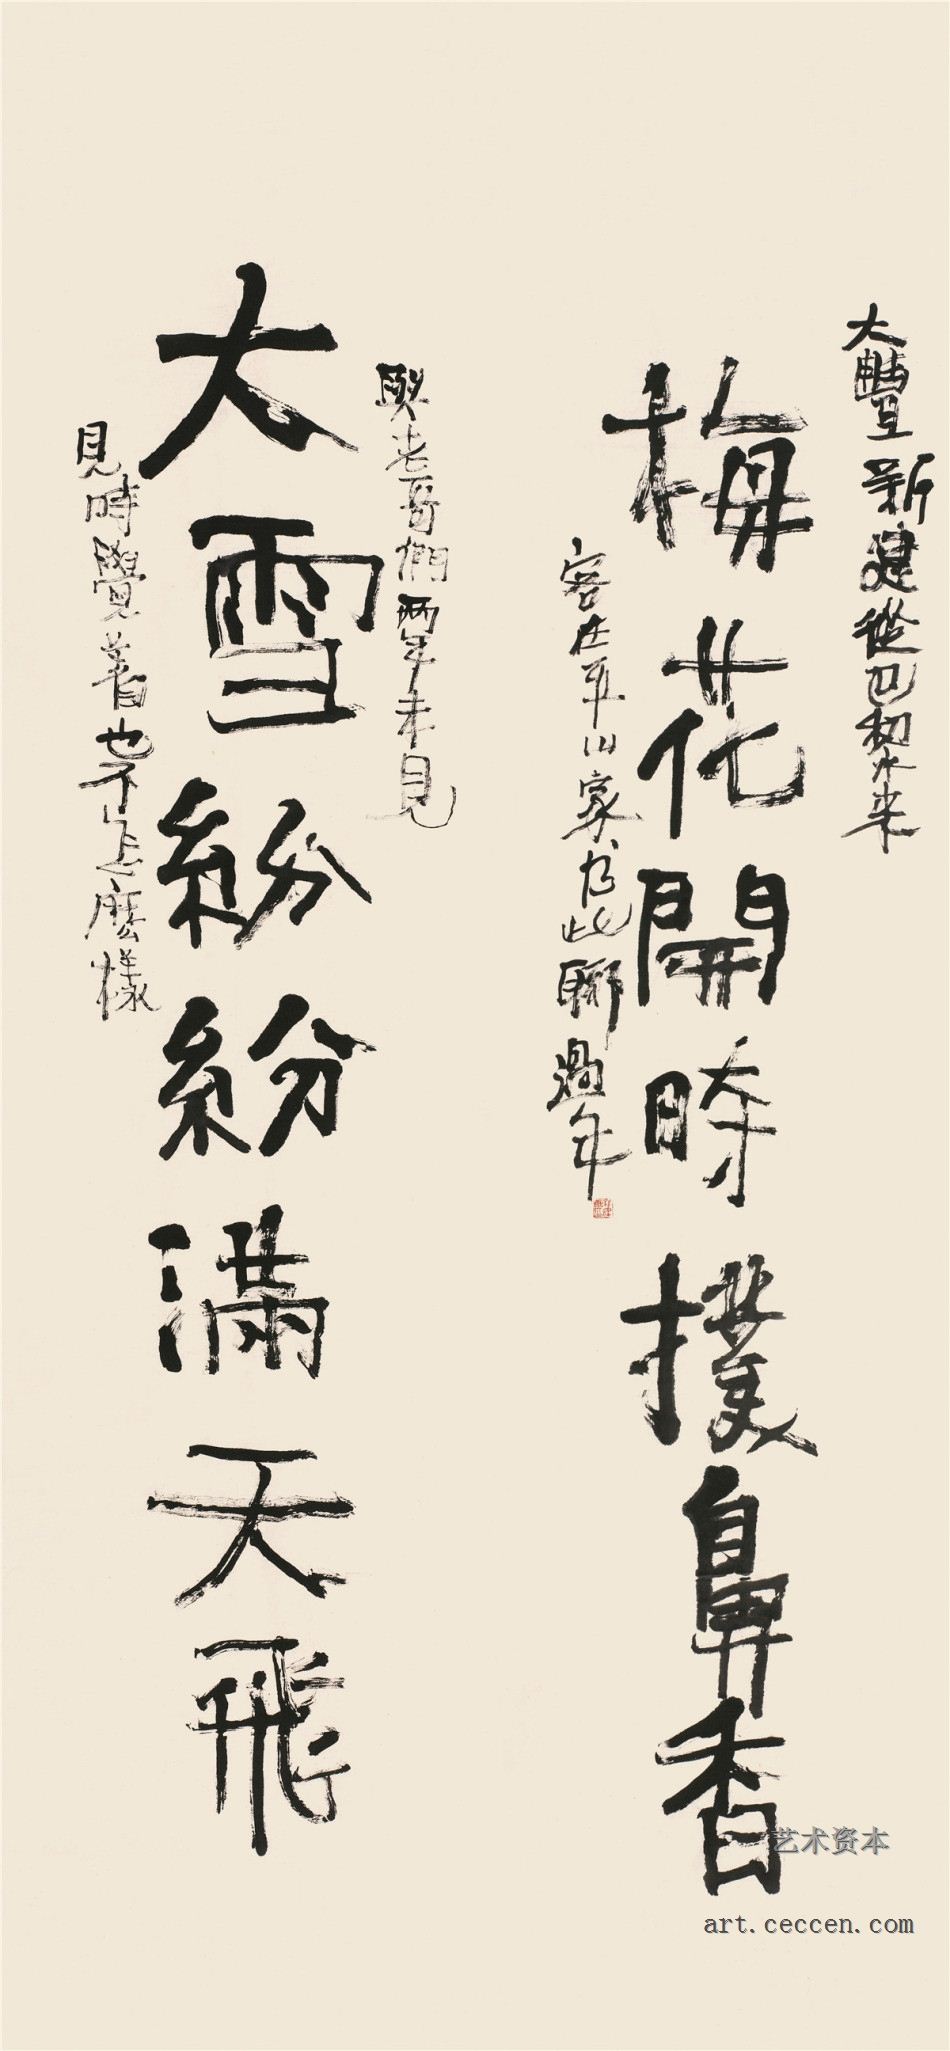 大豐新建從巴黎來
梅花開時撲鼻香
客在平山家乃此聊過年
與老哥們兩年未見
大雪紛紛滿天飛
見時覺着也不怎麼樣
艺术资本
art.ceccen.com